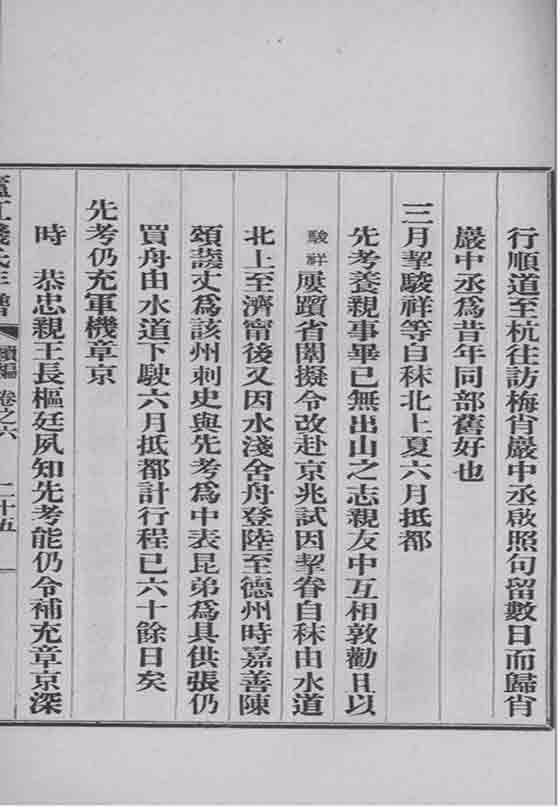 行順道至杭往訪梅肖巖中丞啟照句留數日而歸肖
巖中丞爲昔年同部舊好也
三月挈駿祥等自秣北上夏六月抵都
先考養親事畢已無出山之志親友中互相敦勸且以
駿祥屢躓省闈擬令改赴京兆試因挈眷自秣由水道
北上至濟甯後又因水淺舍舟登陸至德州時嘉善陳
頌𧬘丈爲該州刺史與先考爲中表昆弟爲具供張仍
買舟由水道下駛六月抵都計行程已六十餘日矣
先考仍充軍機章京
時 恭忠親王長樞廷夙知先考能仍令補充章京深
廬江錢氏年譜 續編 卷之六 二十五